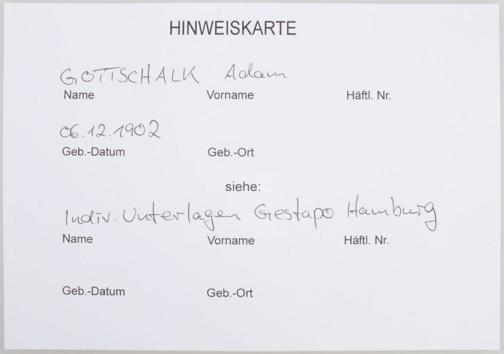 HINWEISKARTE
GOTTSCHALK Adam
Name Vorname Häftl. Nr.
06.12.1902
Geb.-Datum Geb.-Ort
siehe:
Indiv. Unterlagen Gestapo Hamburg
Name Vorname Häftl. Nr.
Geb.-Datum Geb.-Ort